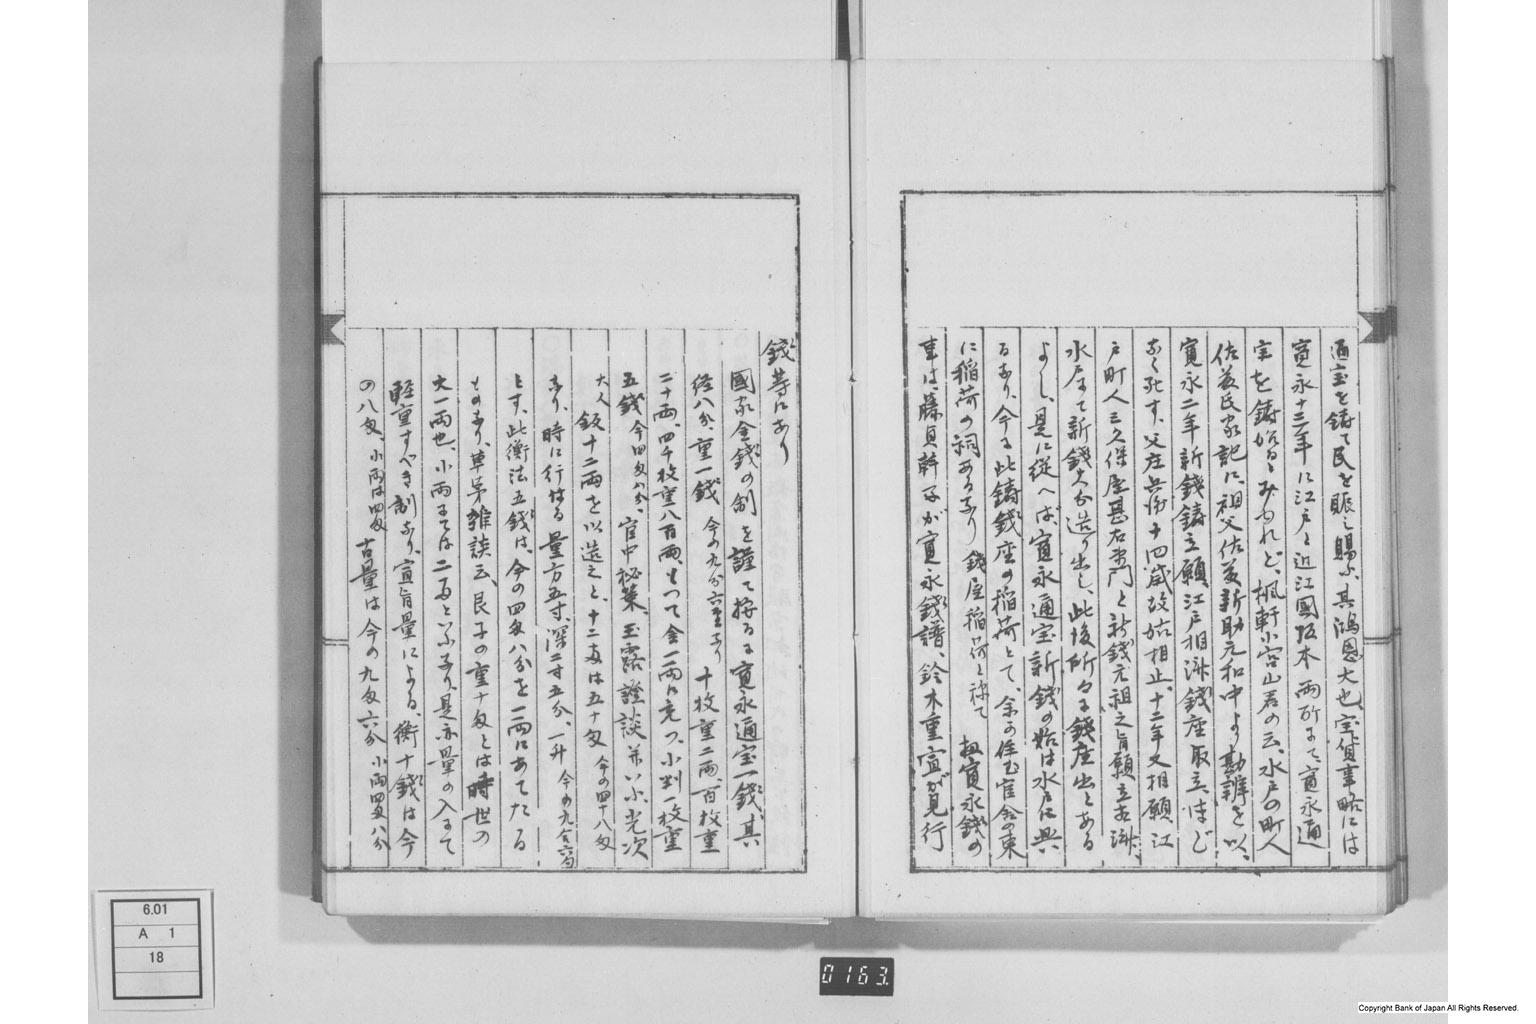 通宝を鋳て民を賑し賜ふ、其鴻恩大也、宝貨事略には
寛永十三年に江戸と近江国坂本両所にて寛永通
宝を鋳始るとみゆれど、楓軒小宮山君の云、水戸の町人
佐藤氏家記に、祖父佐藤新助元和中より勘辨を以、
寛永二年新銭鋳立願、江戸相済銭座取立、ほど
なく死す、父庄兵衛十四歳故始相止、十二年又相願、江
戸町人三久保屋甚右衛門と新銭元祖之旨願立相済、
水戸にて新銭大分造り出し、此後所々に銭座出とある
よし、是に従へば、寛永通宝新銭の始は水戸に興
るなり、今に此鋳銭座の稲荷とて、余の住る官舎の東
に稲荷の祠あるなり 銭座稲荷と称て 扨寛永銭の
事は、藤貞幹子が寛永銭譜、鈴木重宣が見行
銭等にあり
国家金銭の制を謹て按るに寛永通宝一銭、其
径八分、重一銭 今の九分六厘なり 十枚重二両、百枚重
二十両、四千枚重八百両、もつて金一両に充つ、小判一枚重
五銭 今四匁八分、官中秘策、玉露証談并小光次
大人 鈑十二両を以造之と、十二両は五十匁 今の四十八匁
なり、時に行はる量方五寸、深二寸五分、一升 今の九合六勺
とす、此衡法五銭は、今の四匁八分を一両にあてたる
ものなり、草茅雑談云、艮子の重十匁とは時世の
大一両也、小両にては二両といふなり、是亦量の入にて
軽重すべき制なり、宣旨量による、衡十銭は今
の八匁、小両は四匁 古量は今の九匁六分 小両四匁八分
6.01
A 1
18
0163.
Copyright Bank of Japan All Rights Reserved.